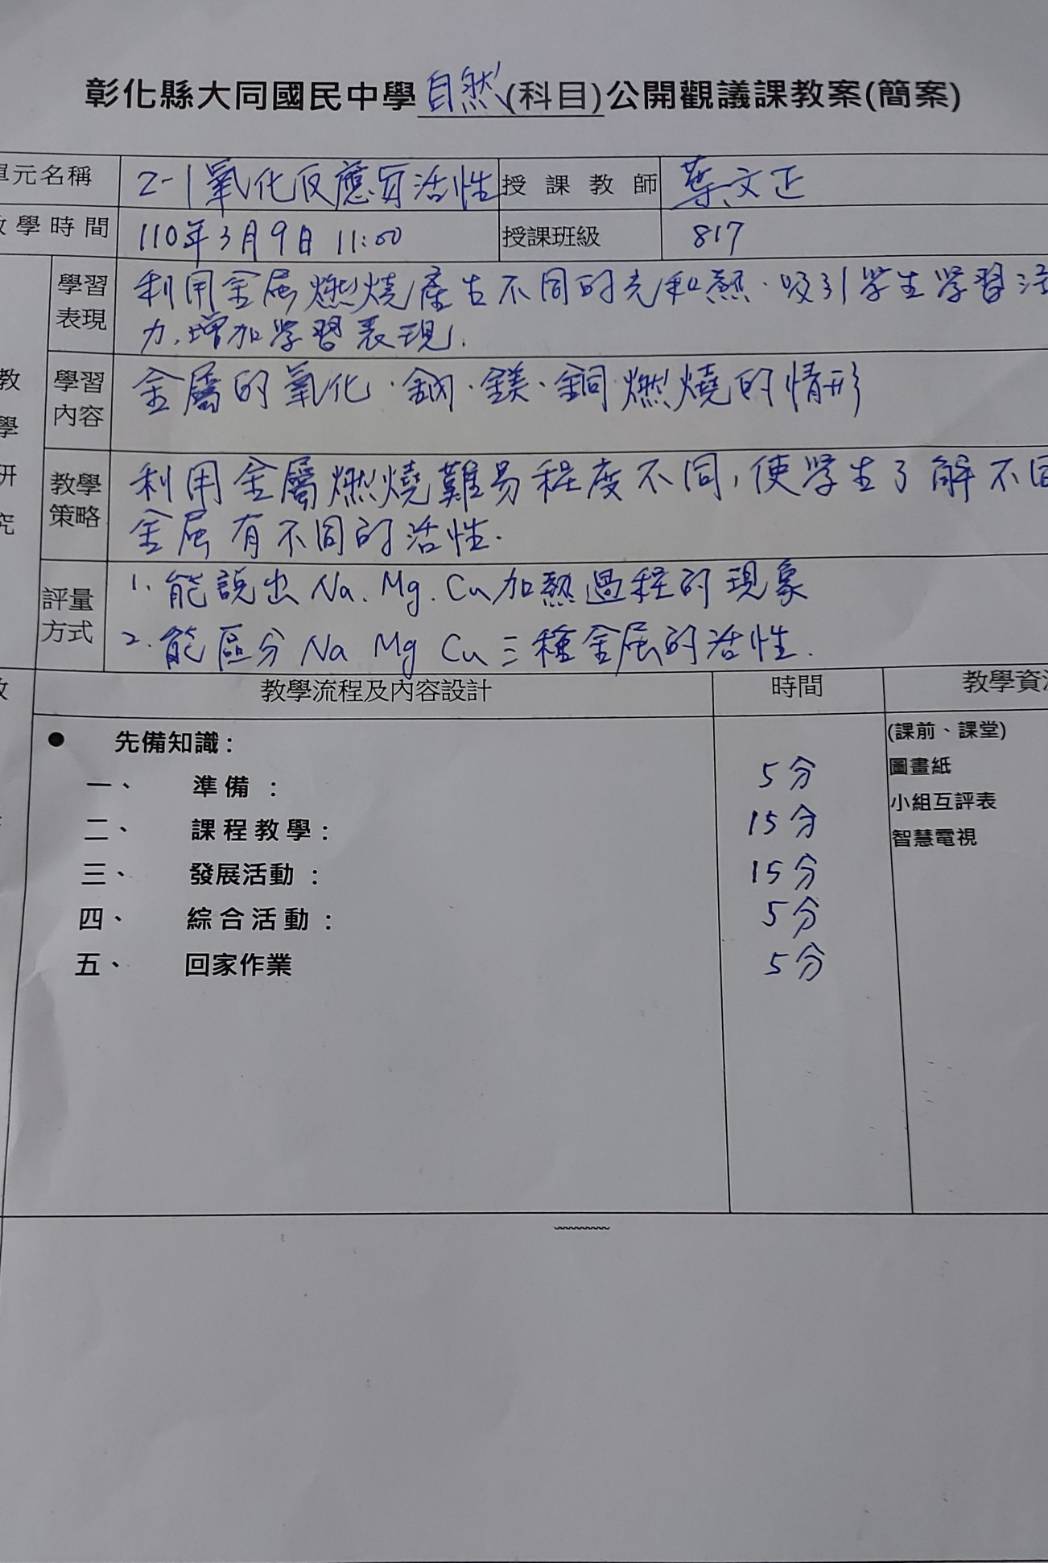 彰化縣大同國民中學自然(科目)公開觀議課教案(簡案)
單元名稱 2-1氧化反應與活性 授課教師 葉文正
教學時間 110年3月9日 11:00 授課班級 817
教學研究
學習表現 利用金属燃燒產生不同的光和熱.吸引学生学習活
力,增加学習表現.
學習內容 金屬的氧化.鈉.鎂.銅燃燒的情形
教學策略 利用金屬燃燒難易程度不同,使学生了解不同
金属有不同的活性.
評量方式 1.能說出Na.Mg.Cu加熱過程的現象
2.能區分Na Mg Cu三種金属的活性.
教學流程及內容設計 時間 教學資
● 先備知識: (課前、課堂)
一、 準備: 5分 圖畫紙
二、 課程教學: 15分 小組互評表
三、 發展活動: 15分 智慧電視
四、 綜合活動: 5分
五、 回家作業 5分